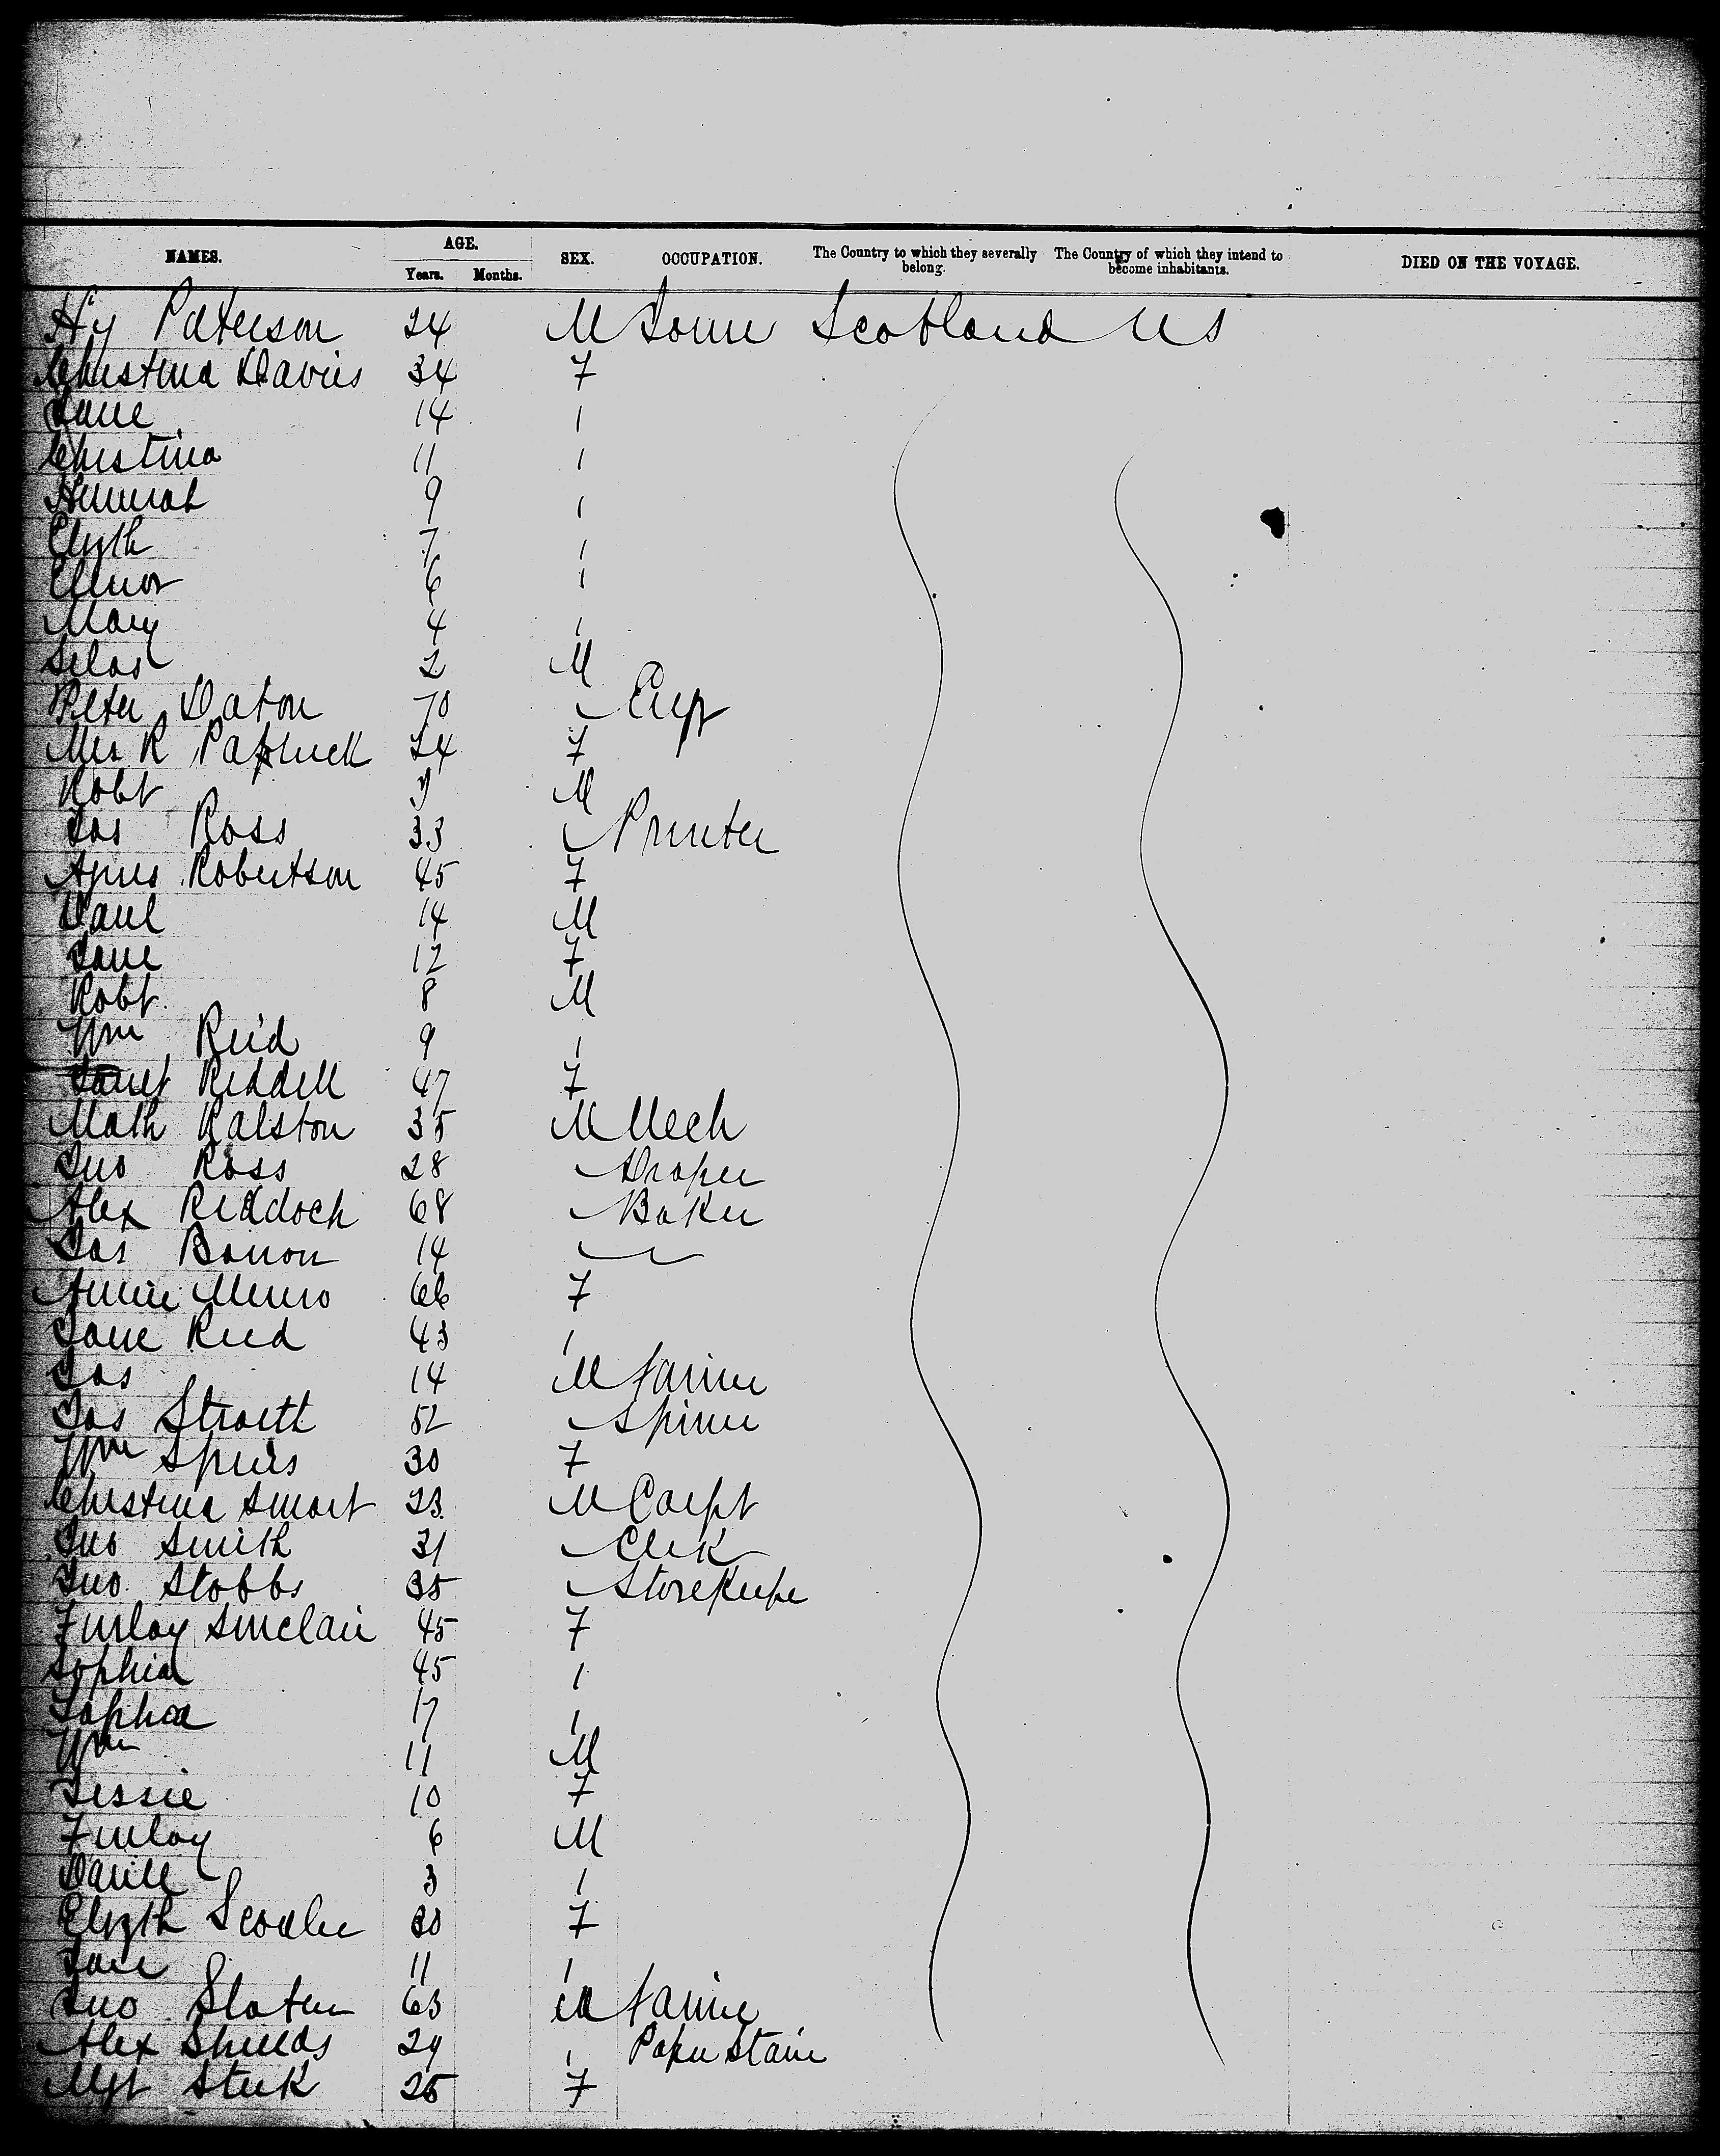 NAMES. AGE. SEX. OCCUPATION. The Country to which they severally belong. The Country of which they intend to become inhabitants. DIED ON THE VOYAGE.
Years. Months.
Hy Paterson 24 M Scotland US
Christina Davies 34 F
Jane 14 1
Christina 11 1
Hannah 9 1
Elizth 7 1
Elinor 6 1
Mary 4 1
Silas 2 M
Peter Daton 70
Mrs R 24 F
Robt M
Jas Ross 33 Printer
Agnes Robertson 45 F
Danl 14 M
Jane 12 F
Robt. 8 M
Wm Reid 9 1
Janet Riddell 47 F
Math Ralston 35 M Mech
Jno Ross 28 Draper
Alex Riddoch 68 Baker
Jas Barron 14
Annie Munro 66 F
Jane Reid 43 1
Jas 14 M Farmer
Jas 52 Spinner
Wm Spiers 30 F
Christina Smart 23 M Carpt
Jno Smith 31 Clerk
Jno Stobbs 35 Storekeepe
Finlay Sinclair 45 F
Sophia 45 1
Sophia 17 1
Wm 11 M
Jessie 10 F
Finlay 6 M
Daniel 3 1
Elizth Scouler 30 F
Jane 11 1
Jno Slater 63 M Farmer
Alex Shields 29 1 Paper Stain
Mgt Steek 25 F